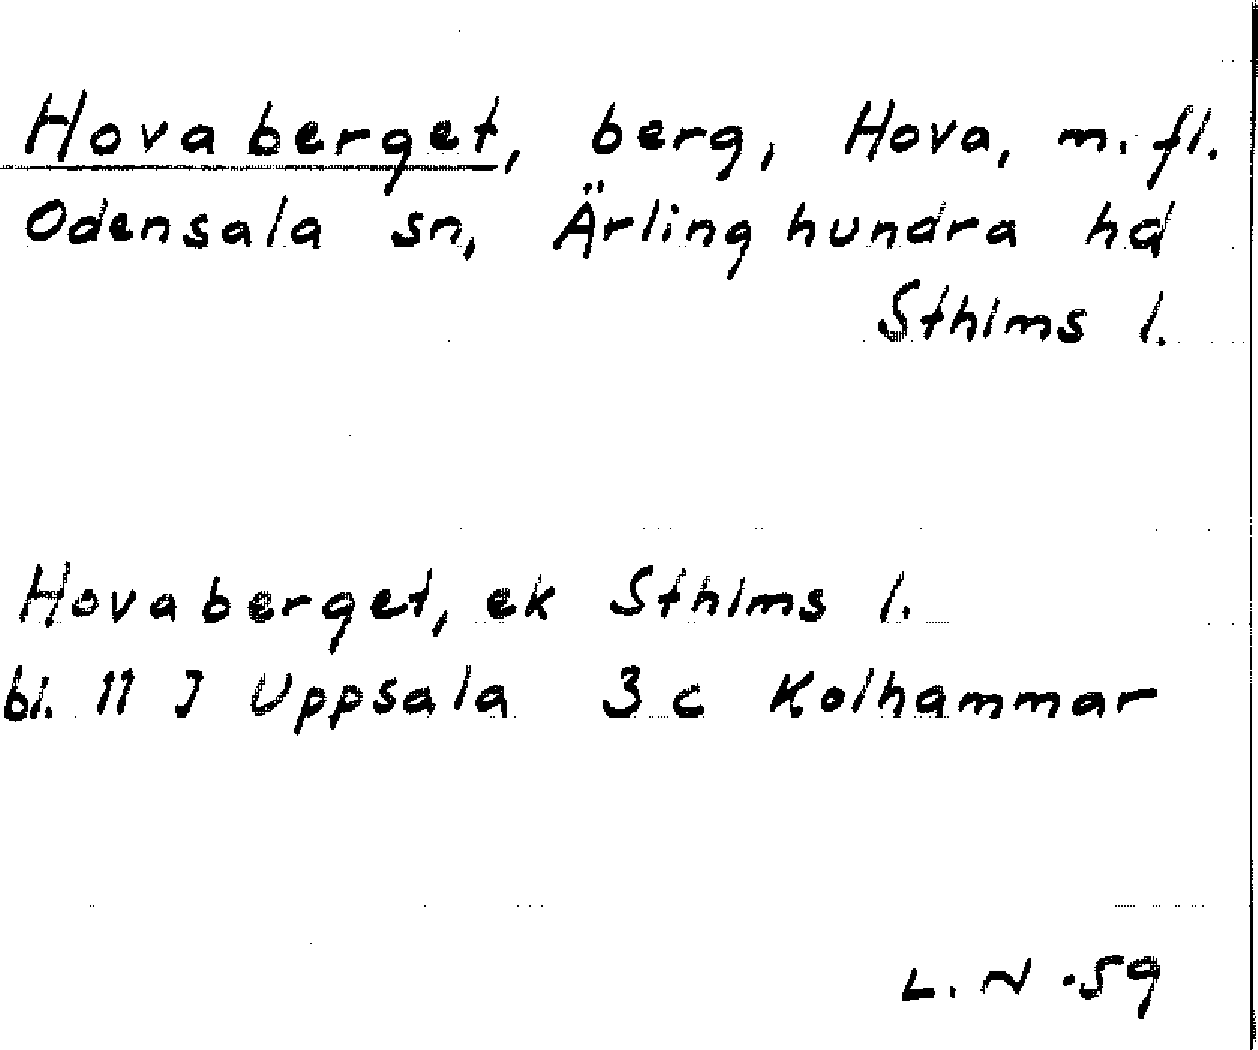 Hovaberget, berg, Hova, m.fl.
Odensala sn, Ärlinghundra hd
Sthlms l.
Hovaberget, ek Sthlms l.
bl. 11 I Uppsala 3 c Kolhammar
L. N. 59